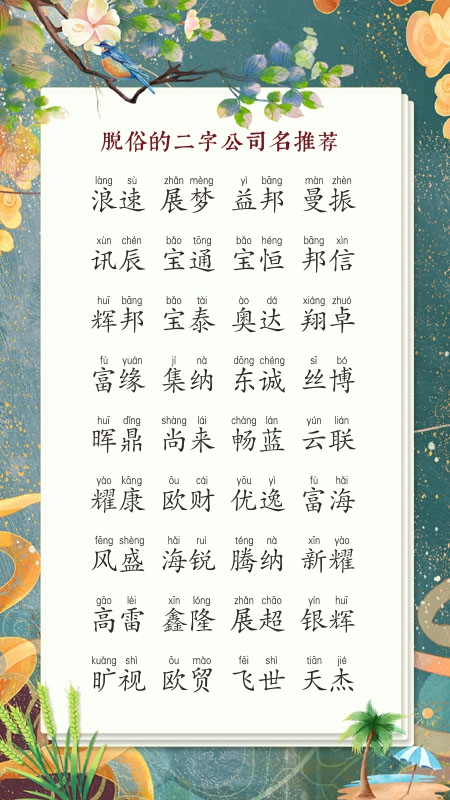 脱俗的二字公司名推荐
làng sù zhǎn mèng yì bāng màn zhèn
浪速 展梦 益邦 曼振
xùn chén bǎo tōng bǎo héng bāng xìn
讯辰 宝通 宝恒 邦信
huī bāng bǎo tài ào dá xiáng zhuó
辉邦 宝泰 奥达 翔卓
fù yuán jí nà dōng chéng sī bó
富缘 集纳 东诚 丝博
huī dǐng shàng lái chàng lán yún lián
晖鼎 尚来 畅蓝 云联
yào kāng ōu cái yōu yì fù hǎi
耀康 欧财 优逸 富海
fēng shèng hǎi ruì téng nà xīn yào
风盛 海锐 腾纳 新耀
gāo léi xīn lóng zhǎn chāo yín huī
高雷 鑫隆 展超 银辉
kuàng shì ōu mào fēi shì tiān jié
旷视 欧贸 飞世 天杰